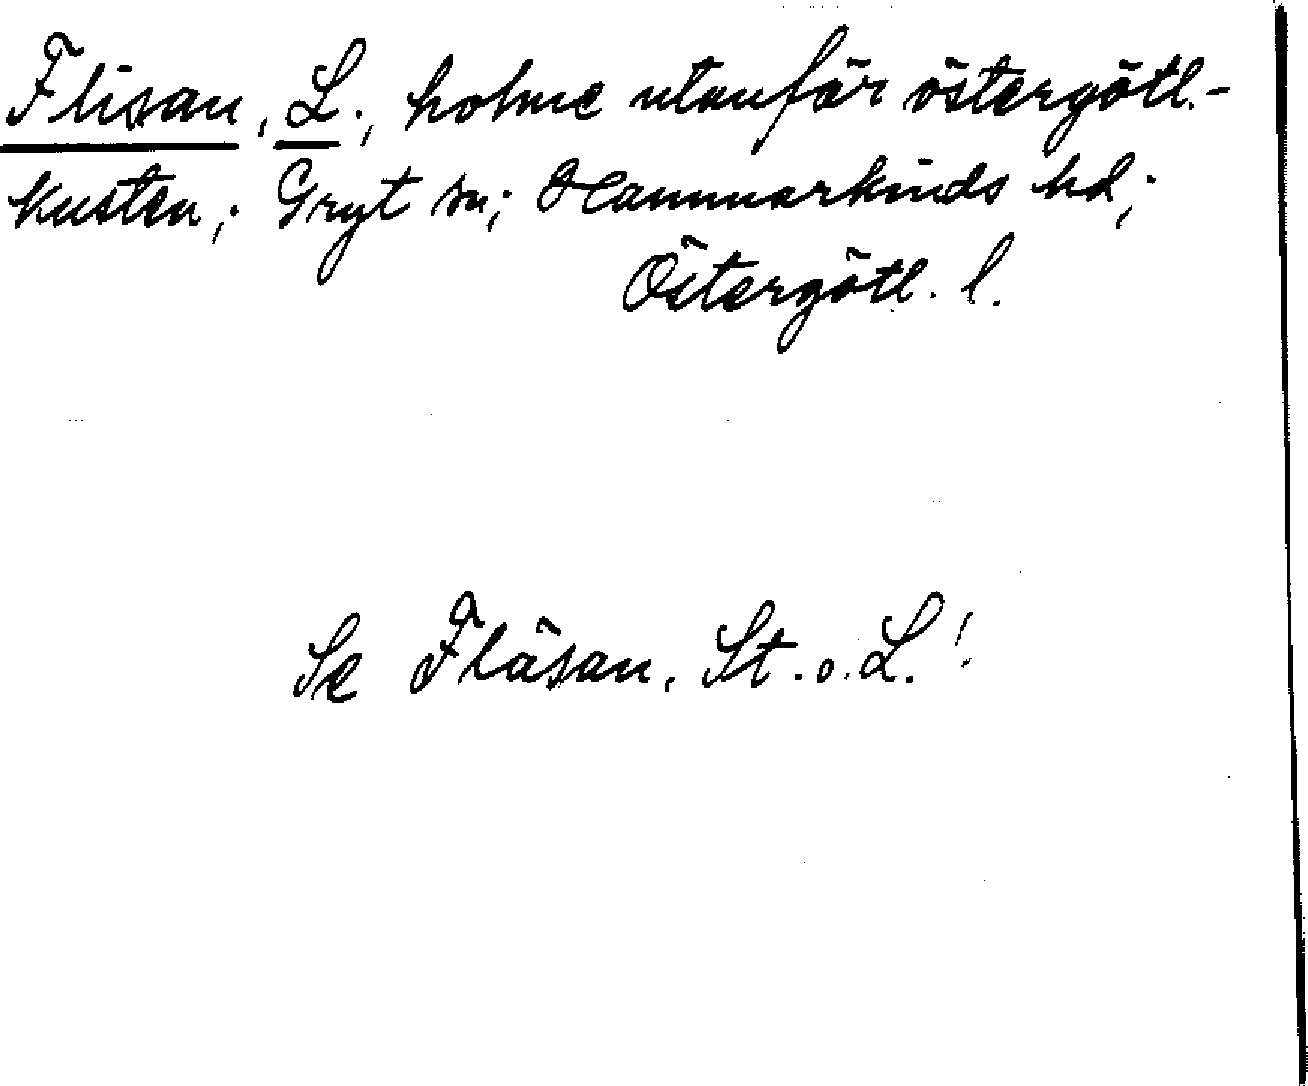 Flisan, L., holme utanför östergötl.-
kusten; Gryt sn; Hammarkinds hd;
Östergötl. l.
Se Fläsan, St. o. L.!